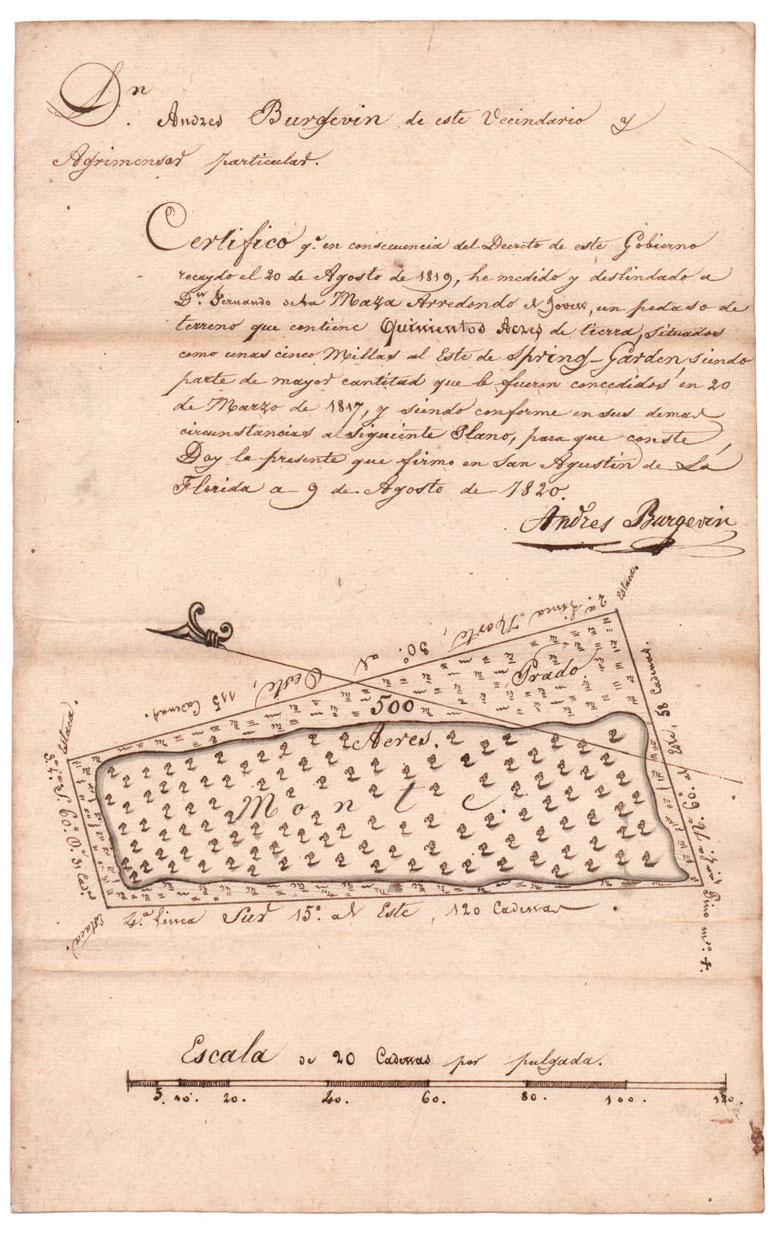 Dn. Andres Burgevin de este Vecindario y
Agrimensor particular.
Certifico qe. en consecuencia del Decreto de este Gobierno
recaydo el 20 de Agosto de 1819, he medido y deslindado a
Dn. Fernando de la Maza Arredondo el Joven, un pedaso de
terreno que contiene Quinientos Acres de tierra, situados
como unas cinco Millas al Este de Spring-Garden, siendo
parte de mayor cantidad que le fueron concedidos en 20
de Marzo de 1817, y siendo conforme en sus demas
circunstancias al Siguiente Plano, para que conste
Doy la presente que firmo en San Agustin de La
Florida a 9 de Agosto de 1820.
Andres Burgevin
Estaca.
2a. Linea Norte, 30°. al Oeste, 115 Cadenas.
Prado.
500
Acres.
Monte.
Estaca.
58 Cadenas.
Pino
Estaca.
4.a Linea Sur 15°. al Este, 120 Cadenas
Escala de 20 Cadenas por pulgada.
5. 10. 20. 40. 60. 80. 100. 120.